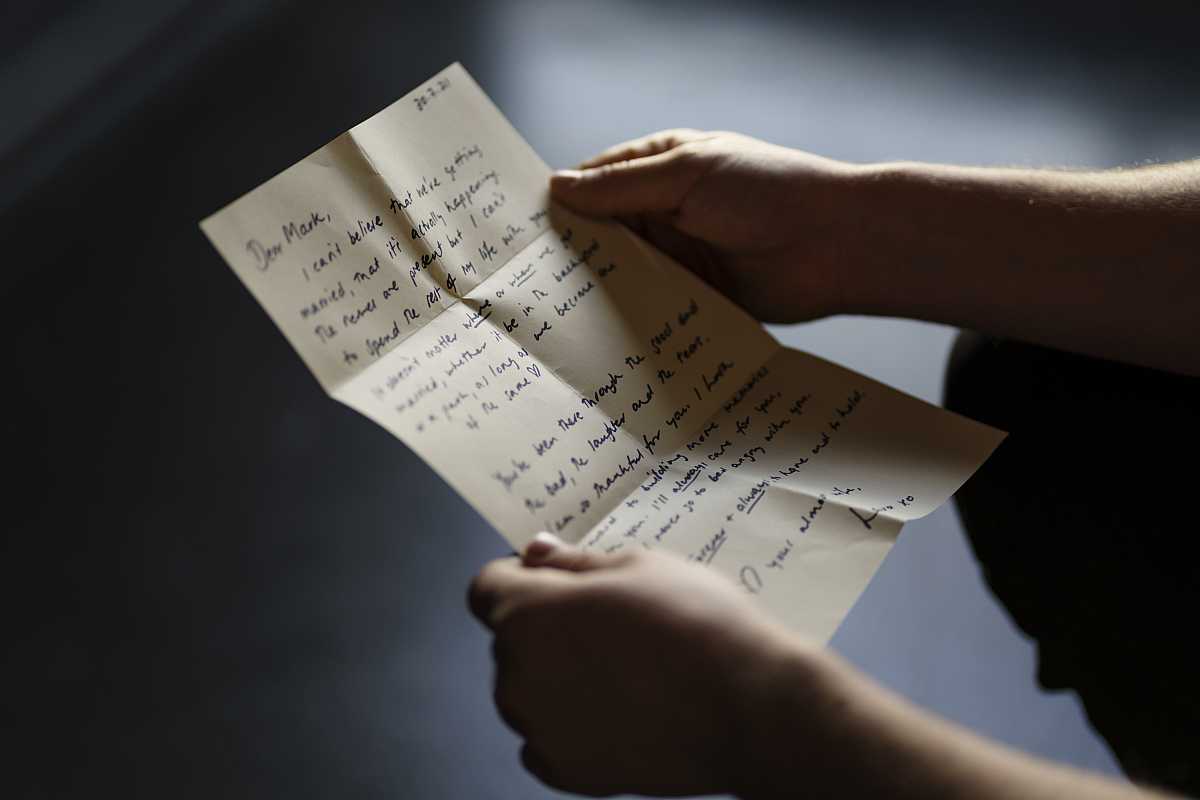 20.2.21
Dear Mark,
I can't believe that we're getting
married, that it's actually happening.
The nerves are present but I can't
to spend the rest of my life with you
It doesn't matter where or when we get
married, whether it be in the backyard
or a park, as long as we become one
of the same ♡
You've been there through the good and
the bad, the laughter and the tears.
I am so thankful for you. I look
to building more memories
you. I'll always care for you,
never go to bed angry with you
forever + always to have and to hold.
♡ your almost wife,
xo